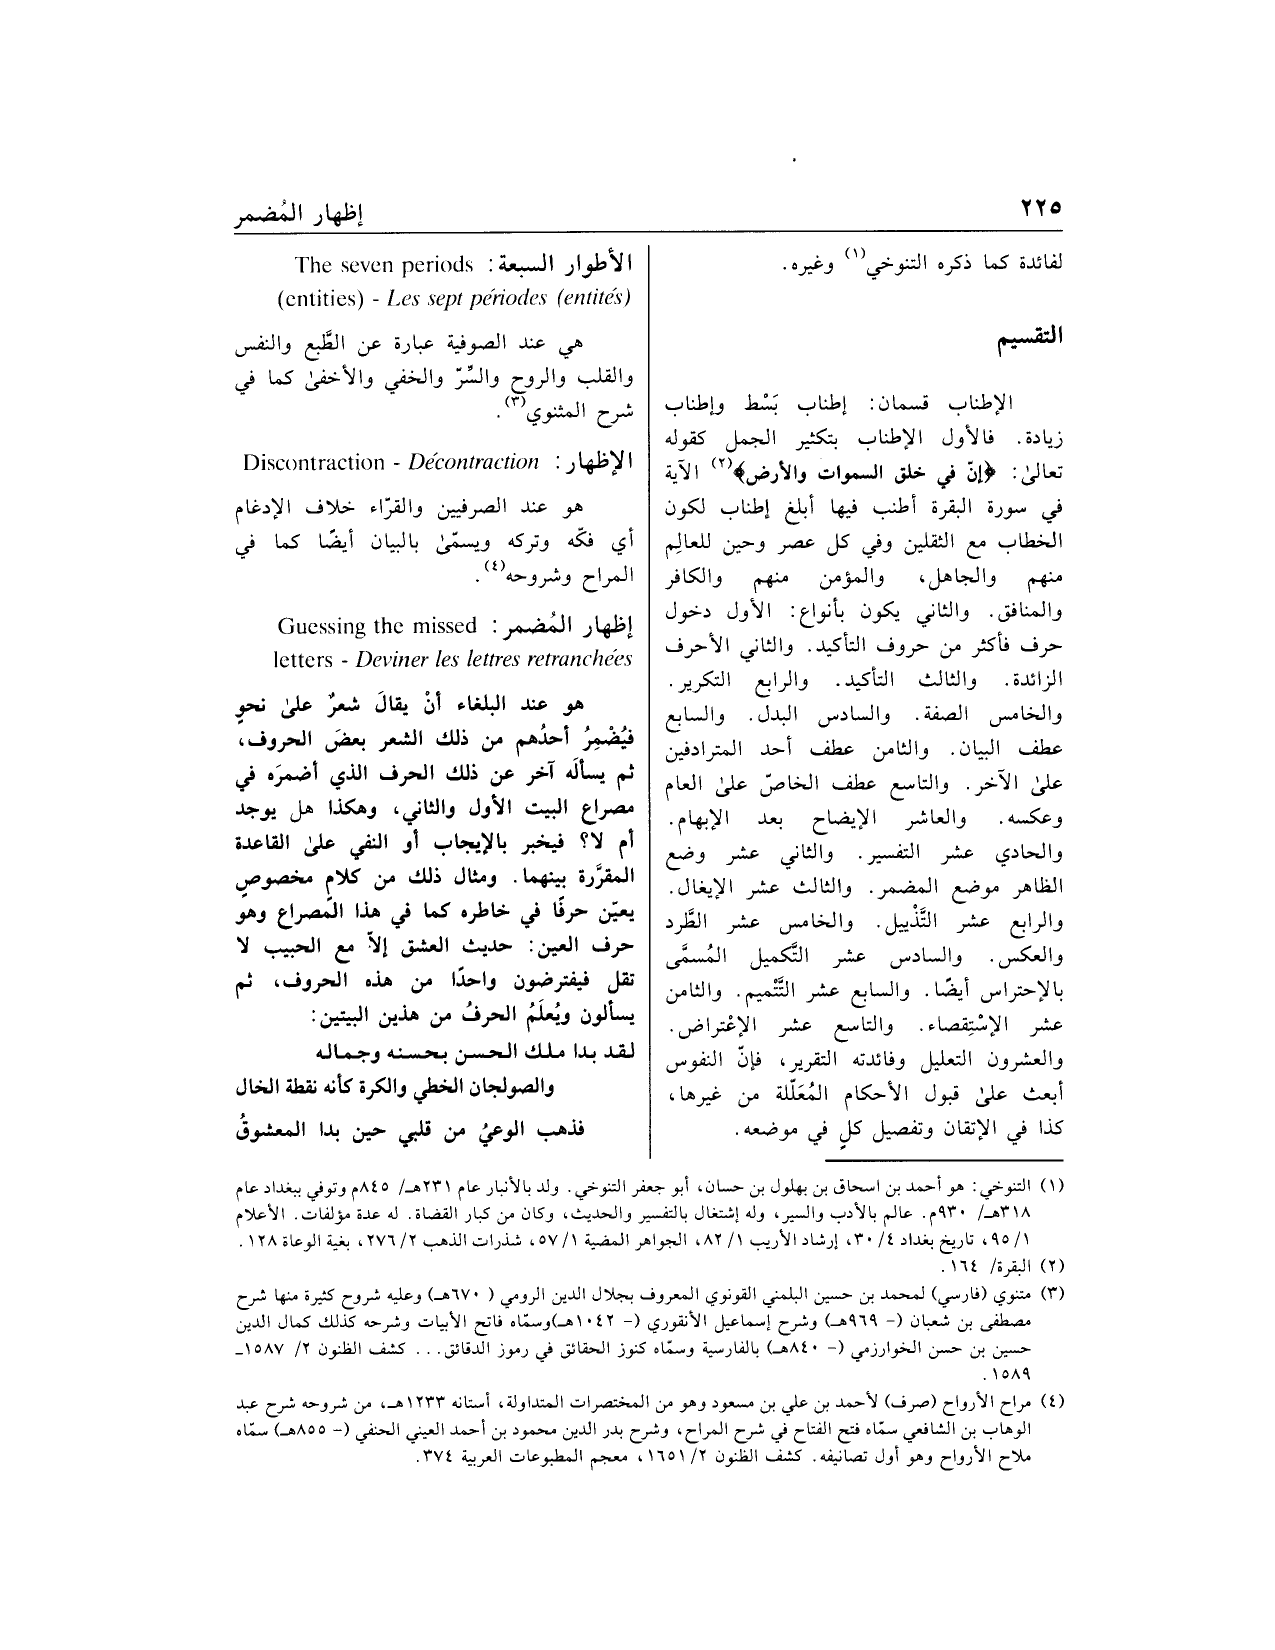 ٢٢٥
إظهار المُضمر
لفائدة كما ذكره التنوخي(١) وغيره.
التقسيم
الإطناب قسمان: إطناب بَسْط وإطناب
زيادة. فالأول الإطناب بتكثير الجمل كقوله
تعالىٰ: ﴿إنّ في خلق السموات والأرض﴾(٢) الآية
في سورة البقرة أطنب فيها أبلغ إطناب لكون
الخطاب مع الثقلين وفي كل عصر وحين للعالِم
منهم والجاهل، والمؤمن منهم والكافر
والمنافق. والثاني يكون بأنواع: الأول دخول
حرف فأكثر من حروف التأكيد. والثاني الأحرف
الزائدة. والثالث التأكيد. والرابع التكرير.
والخامس الصفة. والسادس البدل. والسابع
عطف البيان. والثامن عطف أحد المترادفين
علىٰ الآخر. والتاسع عطف الخاصّ علىٰ العام
وعكسه. والعاشر الإيضاح بعد الإبهام.
والحادي عشر التفسير. والثاني عشر وضع
الظاهر موضع المضمر. والثالث عشر الإيغال.
والرابع عشر التَّذْييل. والخامس عشر الطَّرد
والعكس. والسادس عشر التَّكميل المُسمَّى
بالإحتراس أيضًا. والسابع عشر التَّتْميم. والثامن
عشر الإسْتِقصاء. والتاسع عشر الإعْتراض.
والعشرون التعليل وفائدته التقرير، فإنّ النفوس
أبعث علىٰ قبول الأحكام المُعَلّلة من غيرها،
كذا في الإتقان وتفصيل كلٍ في موضعه.
الأطوار السبعة: The seven periods
(entities) - Les sept périodes (entités)
هي عند الصوفية عبارة عن الطَّبع والنفس
والقلب والروح والسِّرّ والخفي والأخفىٰ كما في
شرح المثنوي(٣).
الإظهار: Discontraction - Décontraction
هو عند الصرفيين والقرّاء خلاف الإدغام
أي فكّه وتركه ويسمّىٰ بالبيان أيضًا كما في
المراح وشروحه(٤).
إظهار المُضمر: Guessing the missed
letters - Deviner les lettres retranchées
هو عند البلغاء أنْ يقالَ شعرٌ علىٰ نحوٍ
فيُضْمِرُ أحدُهم من ذلك الشعر بعضَ الحروف،
ثم يسألَه آخر عن ذلك الحرف الذي أضمرَه في
مصراع البيت الأول والثاني، وهكذا هل يوجد
أم لا؟ فيخبر بالإيجاب أو النفي علىٰ القاعدة
المقرَّرة بينهما. ومثال ذلك من كلامٍ مخصوصٍ
يعيّن حرفًا في خاطره كما في هذا المصراع وهو
حرف العين: حديث العشق إلاّ مع الحبيب لا
تقل فيفترضون واحدًا من هذه الحروف، ثم
يسألون ويُعلَمُ الحرفُ من هذين البيتين:
لقد بدا ملك الحسن بحسنه وجماله
والصولجان الخطي والكرة كأنه نقطة الخال
فذهب الوعيُ من قلبي حين بدا المعشوقُ
(١) التنوخي: هو أحمد بن اسحاق بن بهلول بن حسان، أبو جعفر التنوخي. ولد بالأنبار عام ٢٣١هـ/ ٨٤٥م وتوفي ببغداد عام
٣١٨هـ/ ٩٣٠م. عالم بالأدب والسير، وله إشتغال بالتفسير والحديث، وكان من كبار القضاة. له عدة مؤلفات. الأعلام
٩٥/١، تاريخ بغداد ٣٠/٤، إرشاد الأريب ٨٢/١، الجواهر المضية ٥٧/١، شذرات الذهب ٢٧٦/٢، بغية الوعاة ١٢٨.
(٢) البقرة/ ١٦٤.
(٣) مثنوي (فارسي) لمحمد بن حسين البلمني القونوي المعروف بجلال الدين الرومي ( ٦٧٠هـ) وعليه شروح كثيرة منها شرح
مصطفى بن شعبان (- ٩٦٩هـ) وشرح إسماعيل الأنقوري (- ١٠٤٢هـ)وسمّاه فاتح الأبيات وشرحه كذلك كمال الدين
حسين بن حسن الخوارزمي (- ٨٤٠هـ) بالفارسية وسمّاه كنوز الحقائق في رموز الدقائق... كشف الظنون ٢/ ١٥٨٧ـ
١٥٨٩.
(٤) مراح الأرواح (صرف) لأحمد بن علي بن مسعود وهو من المختصرات المتداولة، أستانه ١٢٣٣هـ، من شروحه شرح عبد
الوهاب بن الشافعي سمّاه فتح الفتاح في شرح المراح، وشرح بدر الدين محمود بن أحمد العيني الحنفي (- ٨٥٥هـ) سمّاه
ملاح الأرواح وهو أول تصانيفه. كشف الظنون ١٦٥١/٢، معجم المطبوعات العربية ٣٧٤.